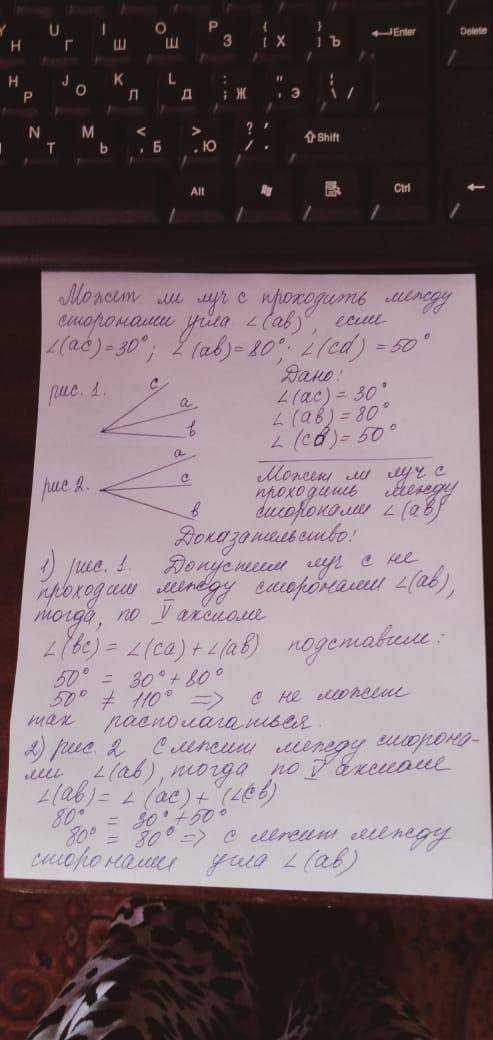 Y U I O P { } Enter Delete
Н Г Ш Щ З [ Х ] Ъ
H J K L : " ¦
Р О Л Д ; Ж , Э \ /
N M < > ? , Shift
Т Ь , Б . Ю / .
Alt Ctrl
Может ли луч с проходить между
сторонами угла ∠(ab), если
∠(ac)=30°; ∠(ab)=80°; ∠(cd)=50°
рис. 1.
c
a
b
Дано:
∠(ac)=30°
∠(ab)=80°
∠(cb)=50°
рис 2.
a
c
b
Может ли луч с
проходить между
сторонами ∠(ab)
Доказательство:
1) рис. 1. Допустим луч с не
проходит между сторонами ∠(ab),
тогда, по V аксиоме
∠(bc) = ∠(ca) + ∠(ab) подставим:
50° = 30° + 80°
50° ≠ 110° => с не может
так располагаться.
2) рис. 2 С лежит между сторона-
ми ∠(ab), тогда по V аксиоме
∠(ab) = ∠(ac) + (∠cb)
80° = 30° + 50°
80° = 80° => с лежит между
сторонами угла ∠(ab)